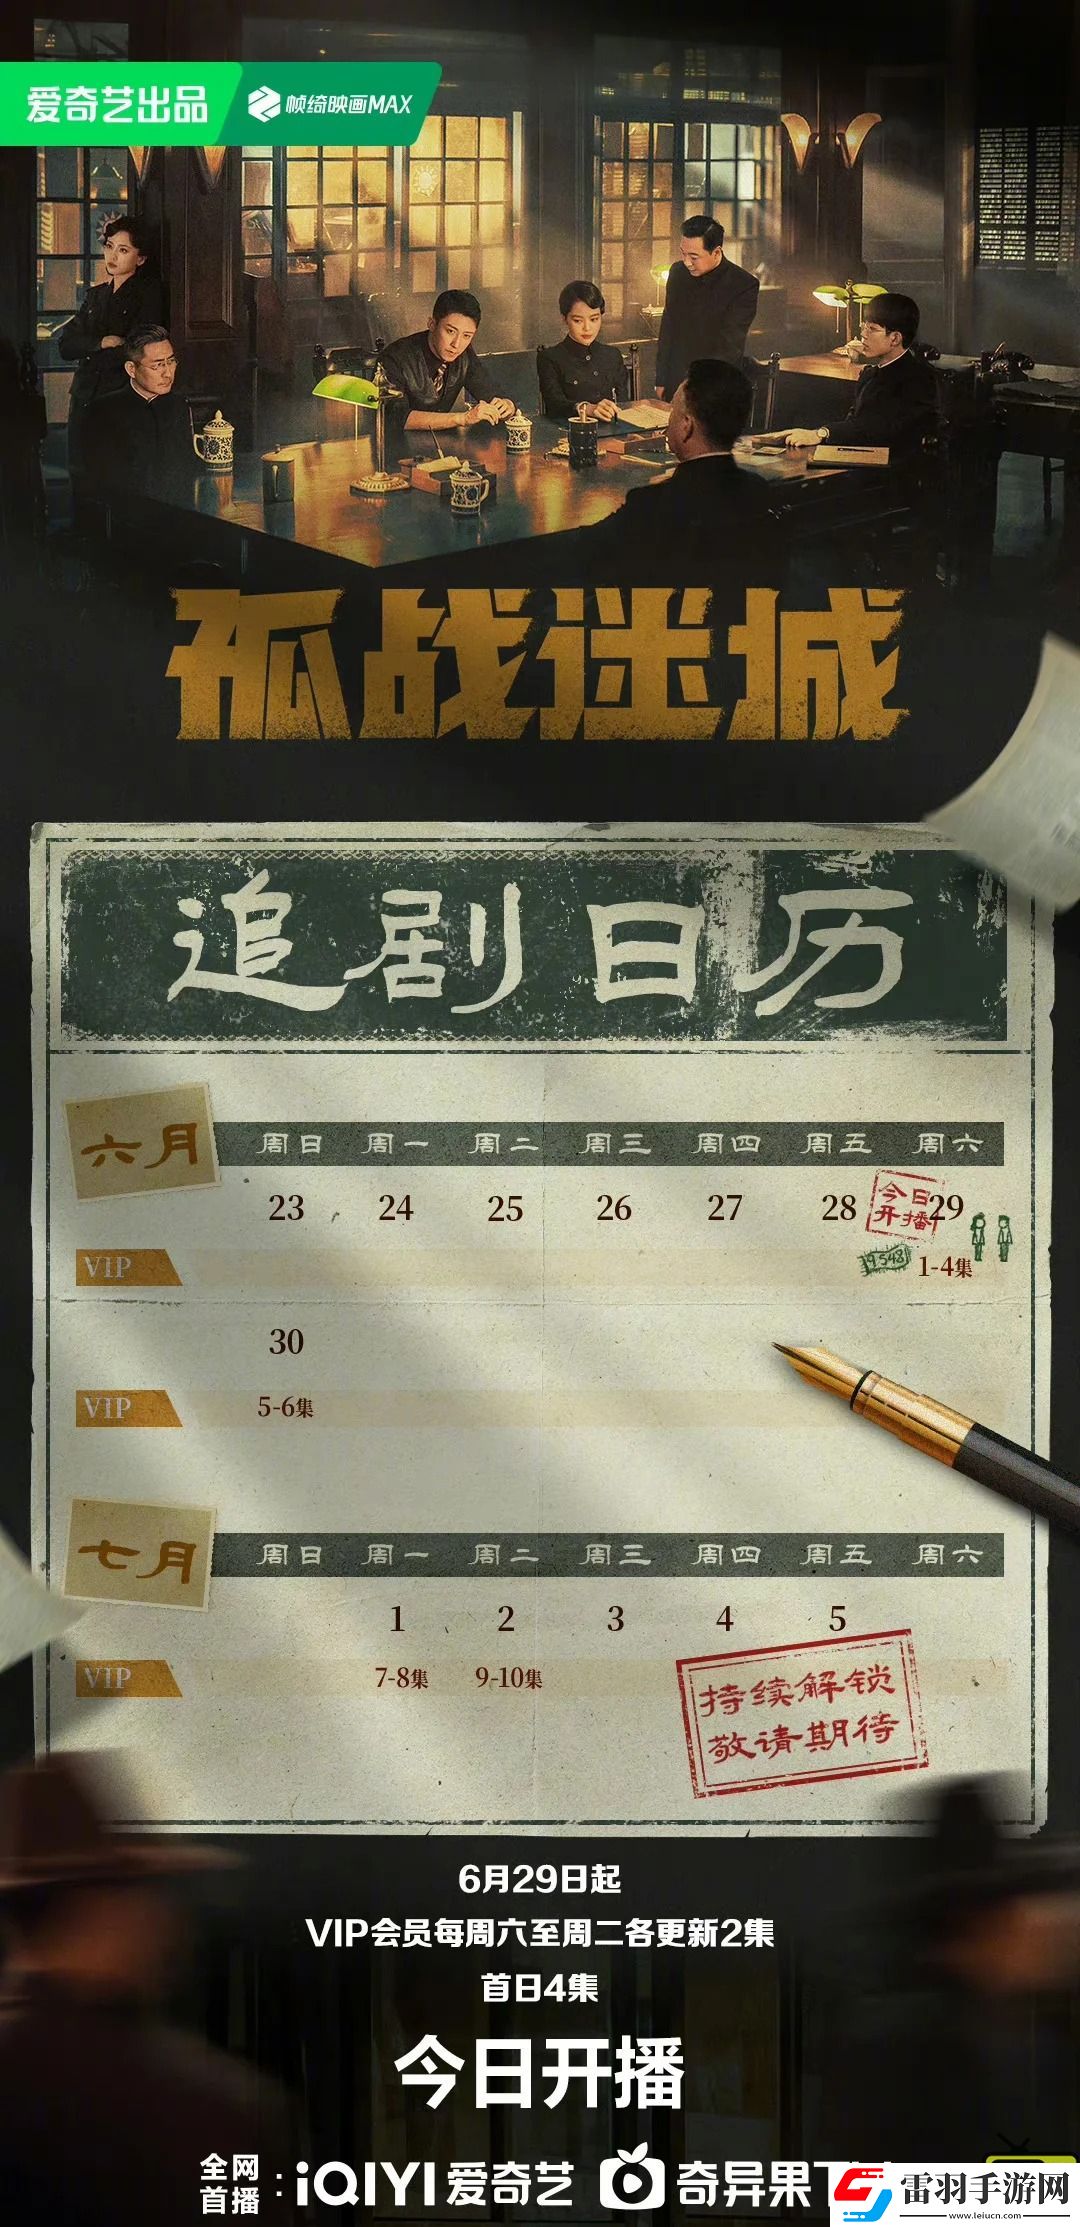 爱奇艺出品
帧绮映画MAX
孤战迷城
追剧日历
六月
周日 周一 周二 周三 周四 周五 周六
23 24 25 26 27 28 29
今日
开播
9548
VIP
1-4集
30
VIP
5-6集
七月
周日 周一 周二 周三 周四 周五 周六
1 2 3 4 5
VIP
7-8集 9-10集
持续解锁
敬请期待
6月29日起
VIP会员每周六至周二各更新2集
首日4集
今日开播
全网
首播
:
iQIYI爱奇艺
奇异果
雷羽手游网
www.leiucn.com